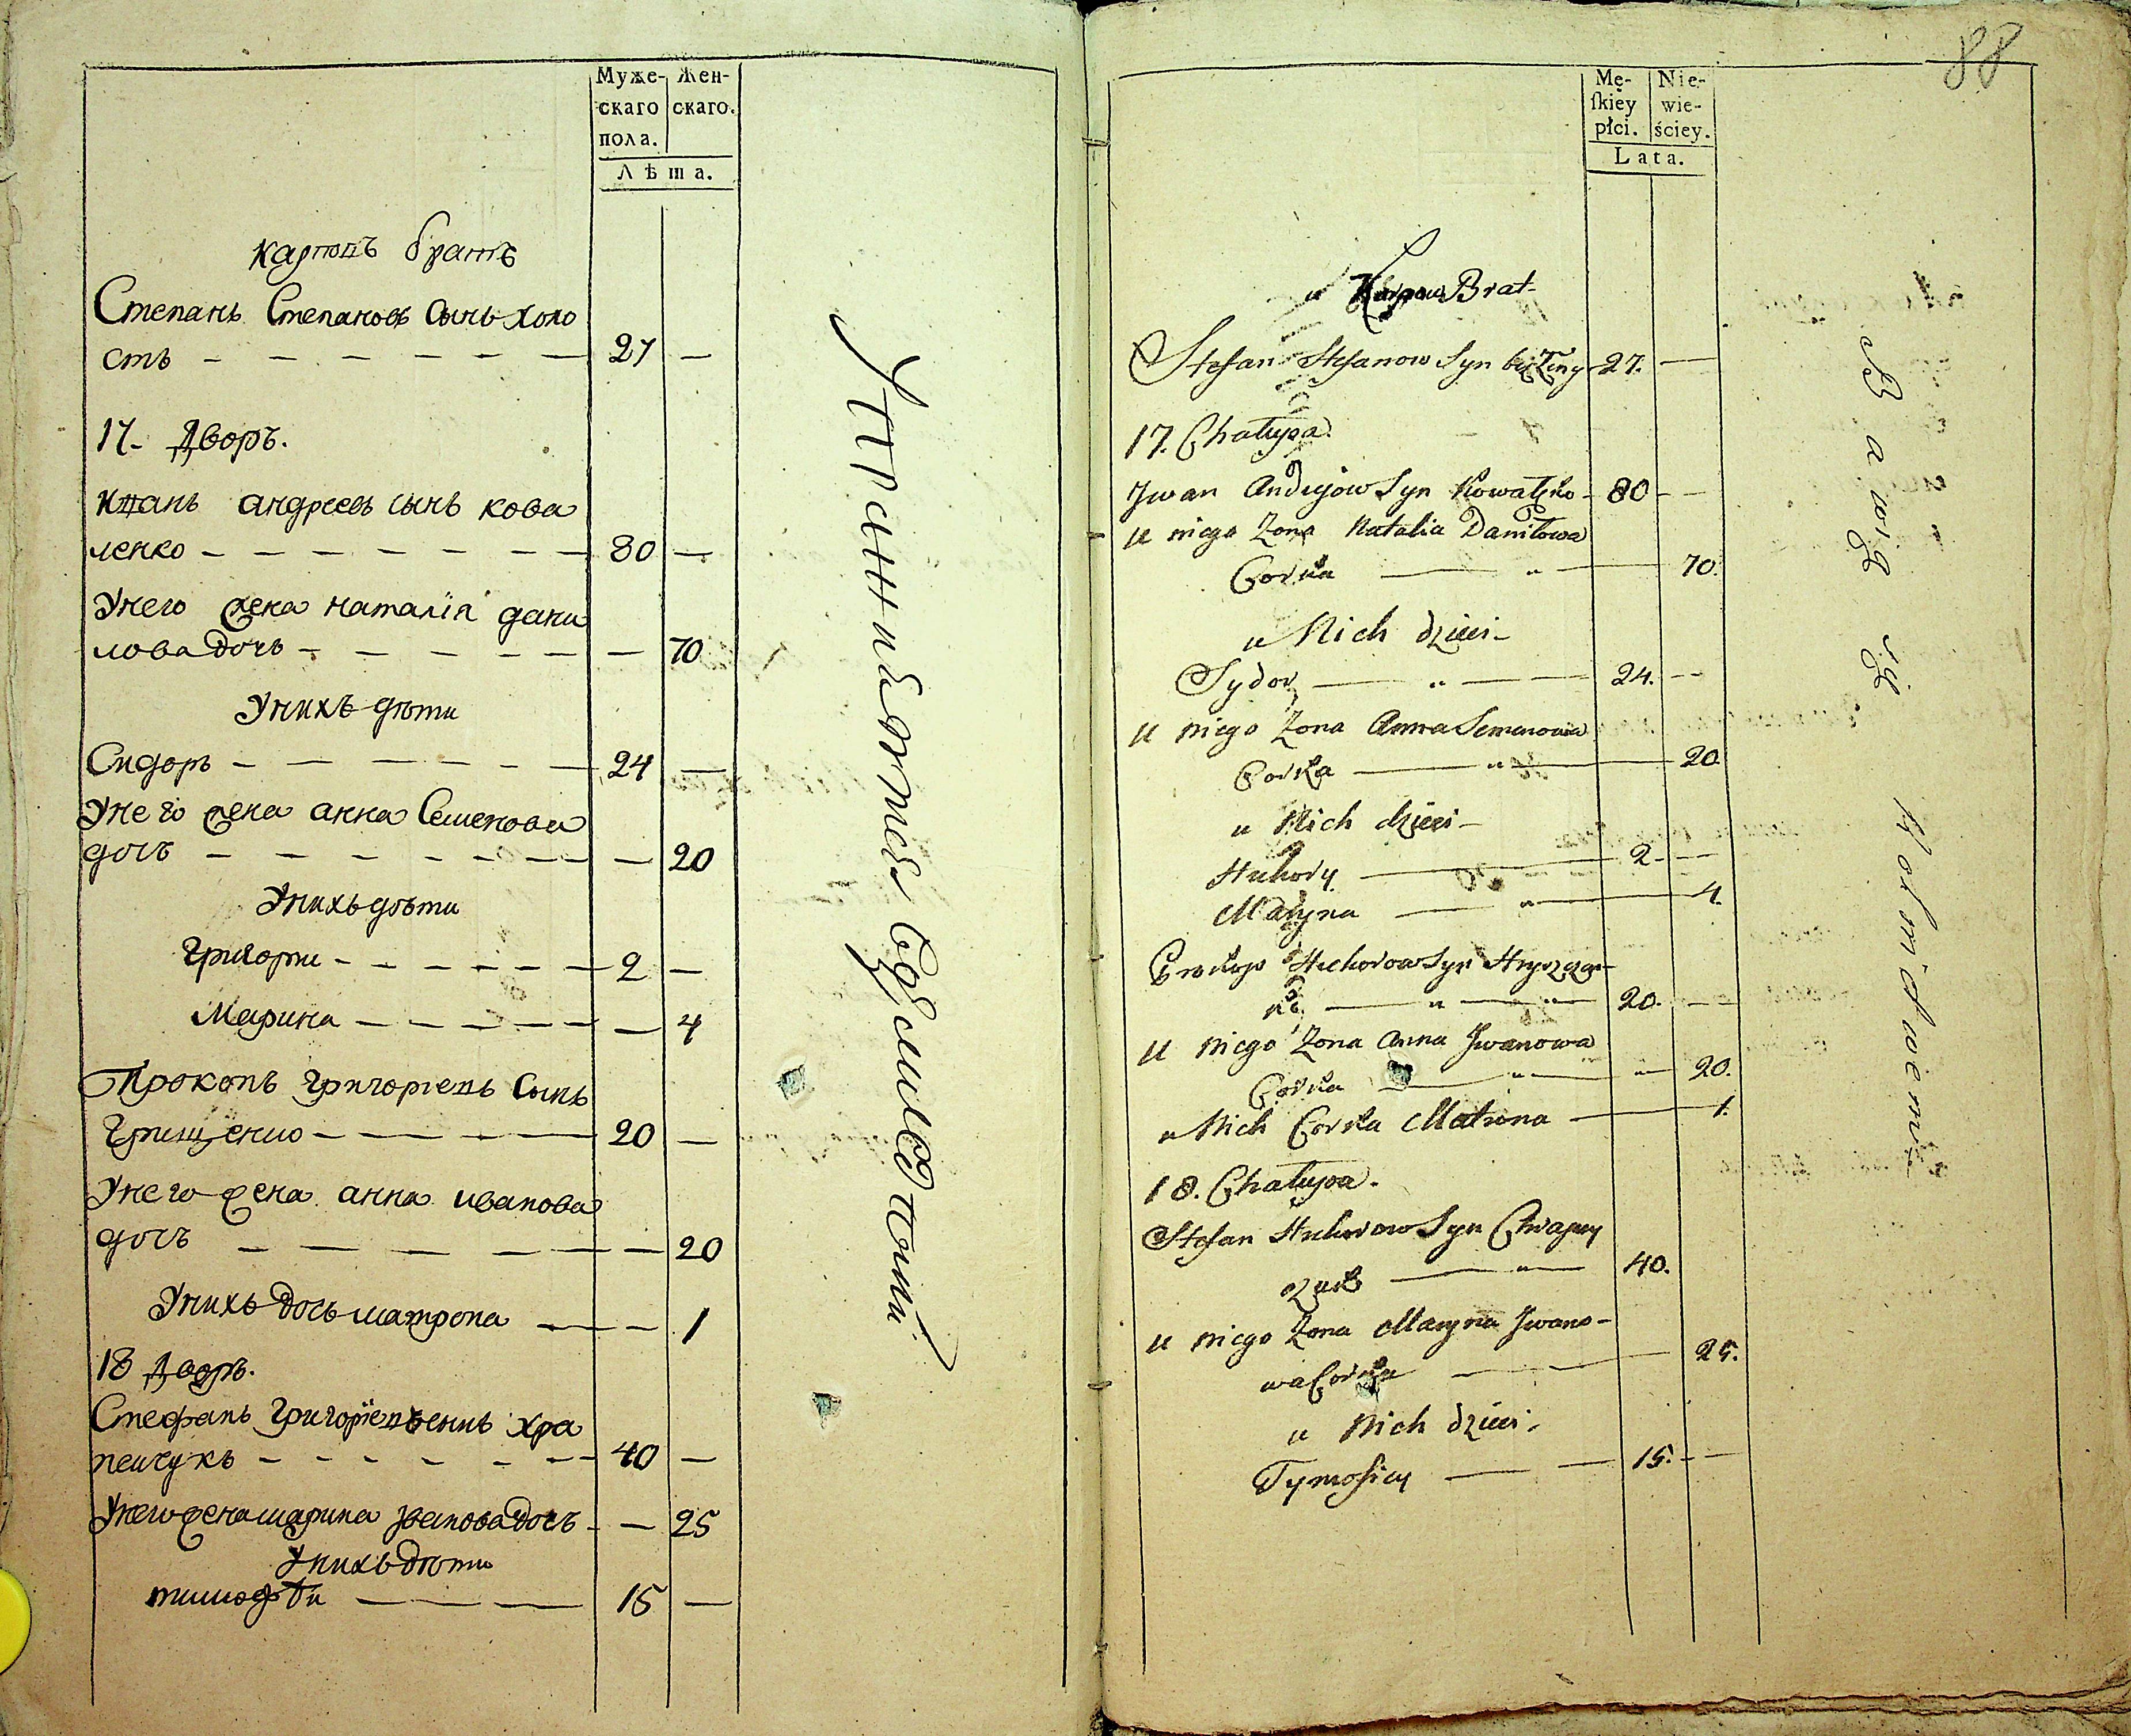 Муже-
скаго
пола.
Жен-
скаго.
Лѣта.
карповъ братъ
Степанъ Степановъ Сынъ холо
стъ — 27 —
17- Дворъ.
Иванъ андреевъ сынъ кова
ленко — 80 —
Унего жена наталiя дани
лова дочь — — 70
Унихъ дѣти
Сидоръ — 24 —
Унего жена анна Семенова
дочь — — 20
Унихъ дѣти
григорти — 2 —
Марина — — 4
Прокопъ григорiевъ Сынъ
Грищенко — 20 —
Унего жена анна иванова
дочь — — 20
Унихъ дочь матрона — — 1
18 Дворъ.
Стефанъ григорiевъ сынъ хра
пенчукъ — 40 —
Унего жена марина Iванова дочь — — 25
Унихъ дѣти
тимофѣи — 15 —
Хранителтся
88
Mę-
ſkiéy
płci.
Nie-
wie-
ściey.
Lata.
u Karpow Brat-
Stefan Stefanow Syn bezżeny 27. —
17. Chałupa.
Jwan Andrejow Syn Kowalenko - 80 - -
u niego Żona Natalia Daniłowa
Corka — " — 70.
u Nich dzieci-
Sydor — " — 24. - -
u niego Żona Anna Semenowa
Corka — " — 20
u Nich dzieci-
Huhory — 2 - —
Maryna — " — 4.
Prokop Huhorow Syn Hryszczen-
ko — " — " — 20. - -
u niego Żona Anna Jwanowa
Corka — " — " — 20.
u Nich Corka Matrona — 1.
18. Chałupa.
Stefan Huhorow Syn Chrapen
czuk — " — 40.
u niego Żona Maryna Jwano-
wa Corka — 25.
u Nich dzieci-
Tymofiey — 15. - —